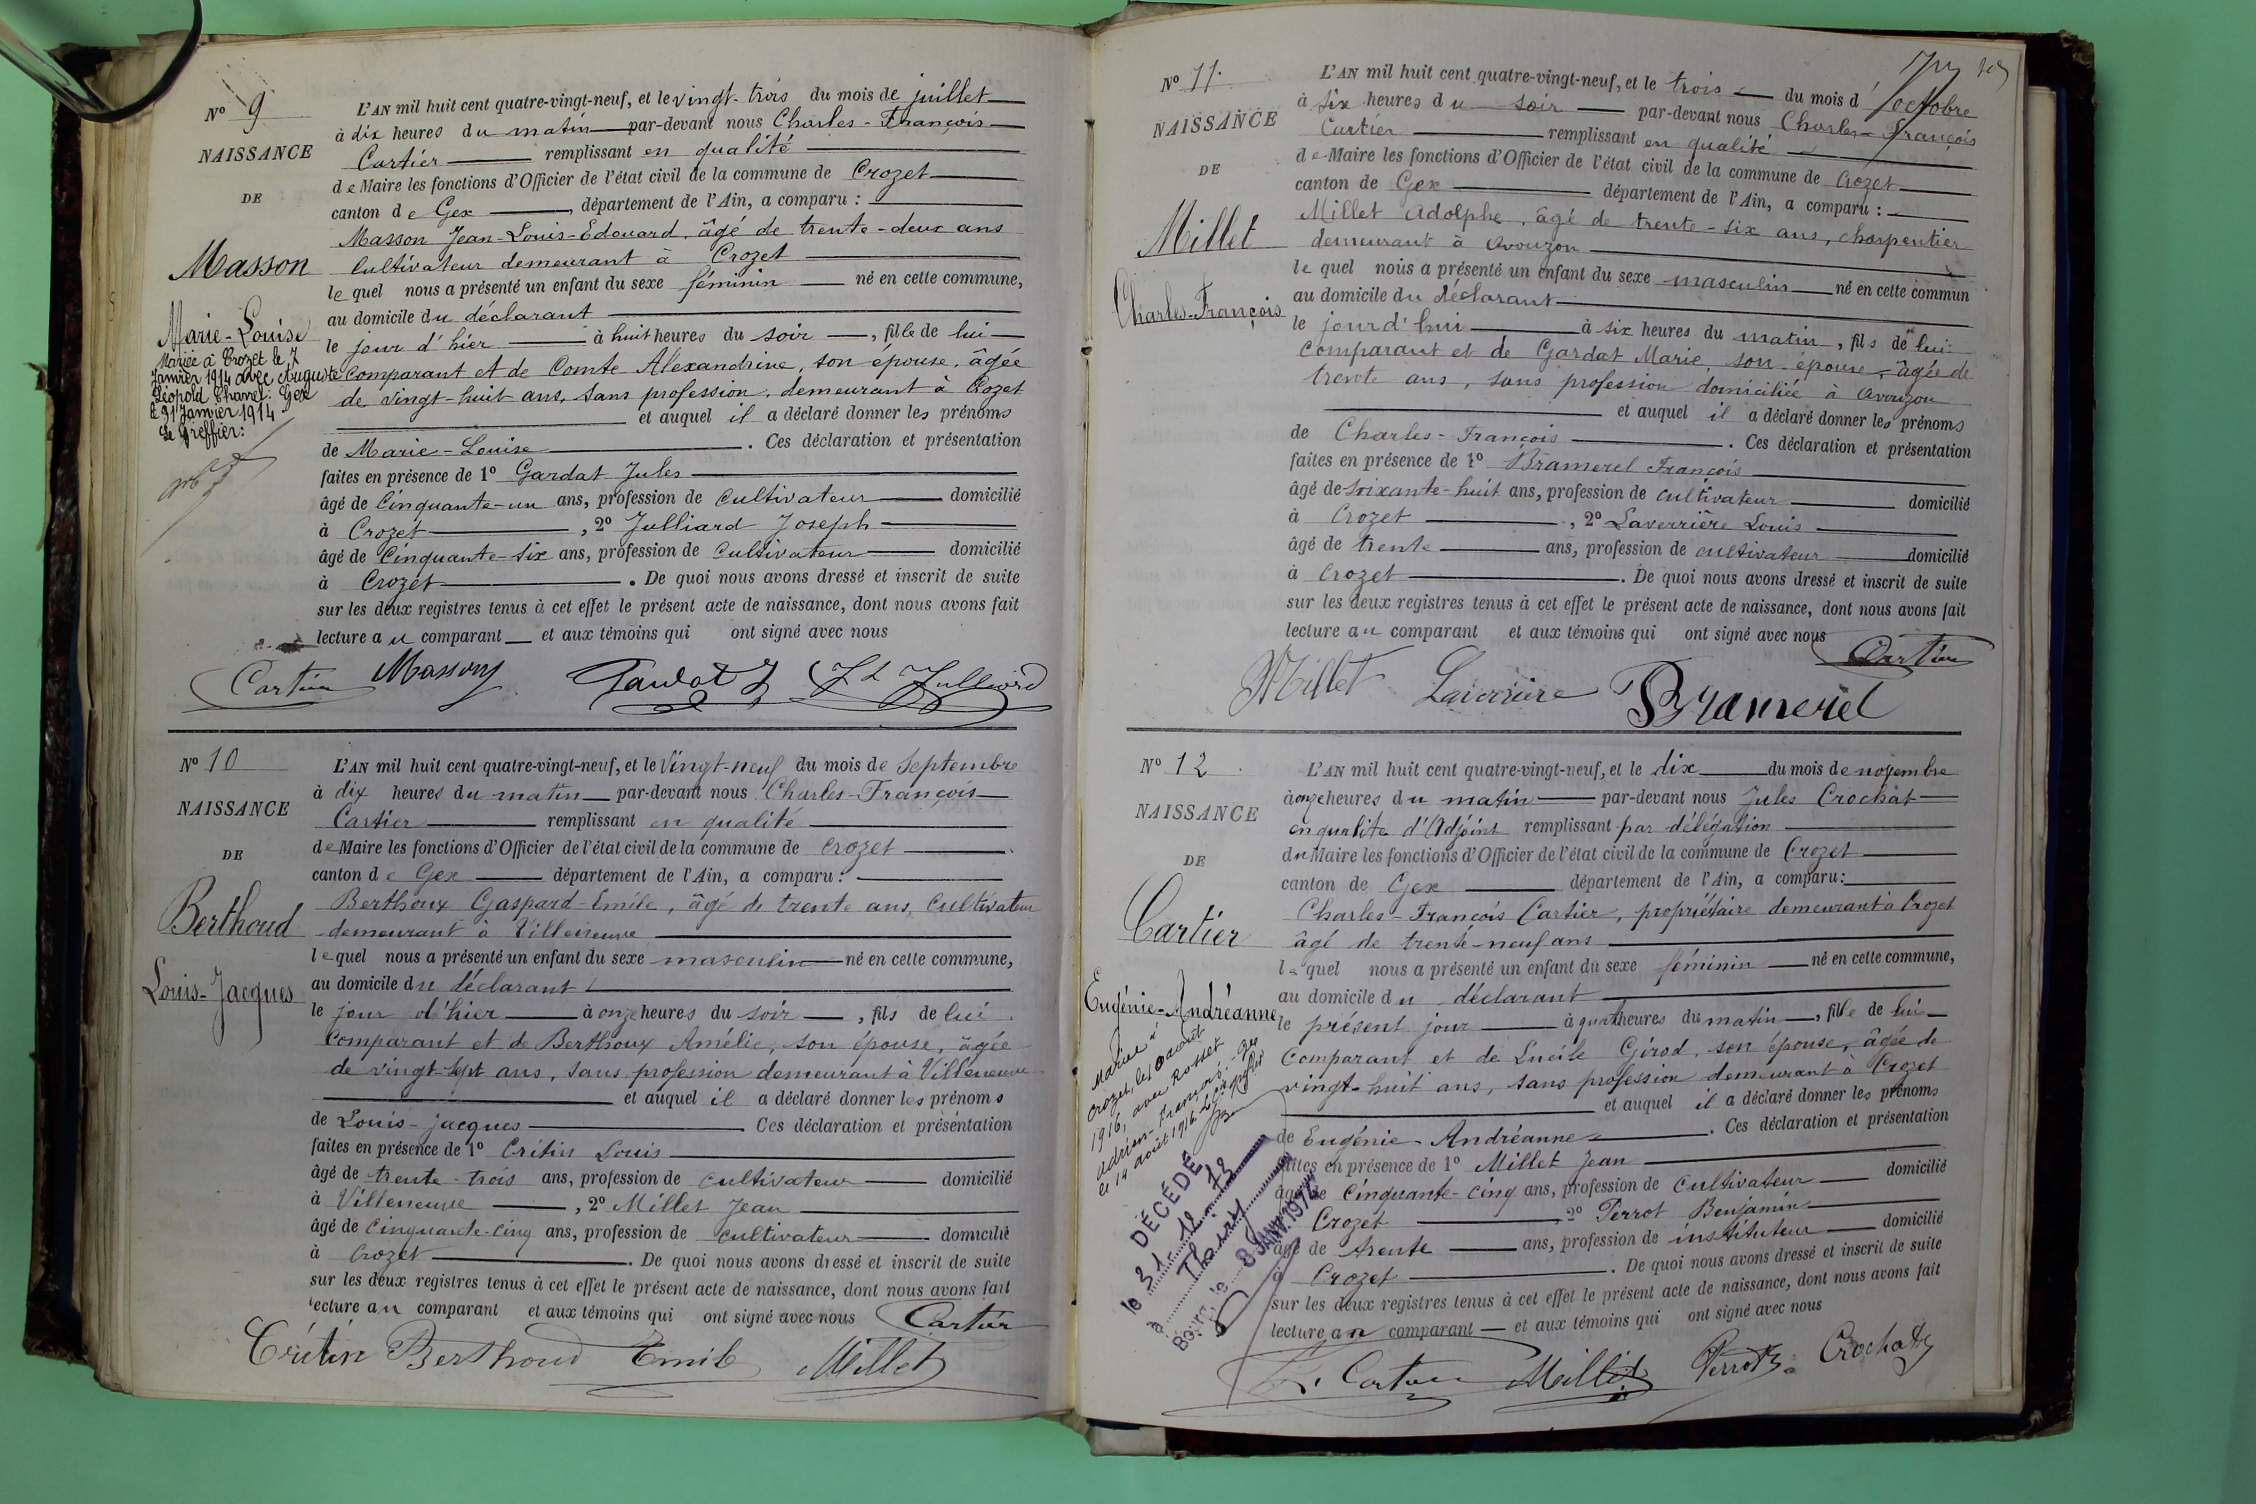 N° 9
NAISSANCE
DE
Masson
Marie-Louise
Mariée à Crozet le 7
Janvier 1914 avec Auguste
Léopold Chanel: Gex
le 31 Janvier 1914
Le Greffier:
L'AN mil huit cent quatre-vingt-neuf, et le vingt-trois du mois de juillet
à dix heures du matin par-devant nous Charles-François
Cartier remplissant en qualité
de Maire les fonctions d'Officier de l'état civil de la commune de Crozet
canton de Gex, département de l'Ain, a comparu :
Masson Jean-Louis-Edouard, âgé de trente-deux ans
Cultivateur demeurant à Crozet
lequel nous a présenté un enfant du sexe féminin né en cette commune,
au domicile du déclarant
le jour d'hier à huit heures du soir, fille de lui
comparant et de Comte Alexandrine, son épouse, âgée
de vingt-huit ans, sans profession, demeurant à Crozet
et auquel il a déclaré donner les prénoms
de Marie-Louise. Ces déclaration et présentation
faites en présence de 1° Gardat Jules
âgé de Cinquante-un ans, profession de cultivateur domicilié
à Crozet, 2° Julliard Joseph
âgé de Cinquante-six ans, profession de cultivateur domicilié
à Crozet. De quoi nous avons dressé et inscrit de suite
sur les deux registres tenus à cet effet le présent acte de naissance, dont nous avons fait
lecture au comparant et aux témoins qui ont signé avec nous
Cartier Masson Gardat J Jh Julliard
N° 10
NAISSANCE
DE
Berthoud
Louis-Jacques
L'AN mil huit cent quatre-vingt-neuf, et le vingt-neuf du mois de Septembre
à dix heures du matin par-devant nous Charles-François
Cartier remplissant en qualité
de Maire les fonctions d'Officier de l'état civil de la commune de Crozet
canton de Gex département de l'Ain, a comparu :
Berthoux Gaspard-Emile, âgé de trente ans, cultivateur
demeurant à Villeneuve
lequel nous a présenté un enfant du sexe masculin né en cette commune,
au domicile du déclarant
le jour d'hier à onze heures du soir, fils de lui
comparant et de Berthoux Amélie, son épouse, âgée
de vingt-sept ans, sans profession demeurant à Villeneuve
et auquel il a déclaré donner les prénoms
de Louis-Jacques Ces déclaration et présentation
faites en présence de 1° Critin Louis
âgé de trente-trois ans, profession de cultivateur domicilié
à Villeneuve, 2° Millet Jean
âgé de cinquante-cinq ans, profession de cultivateur domicilié
à Crozet. De quoi nous avons dressé et inscrit de suite
sur les deux registres tenus à cet effet le présent acte de naissance, dont nous avons fait
lecture au comparant et aux témoins qui ont signé avec nous Cartier
Critin Berthoud Emile Millet
N° 11.
NAISSANCE
DE
Millet
Charles-François
L'AN mil huit cent quatre-vingt-neuf, et le trois du mois d'octobre
à six heures du soir par-devant nous Charles-François
Cartier remplissant en qualité
de Maire les fonctions d'Officier de l'état civil de la commune de Crozet
canton de Gex département de l'Ain, a comparu :
Millet Adolphe, âgé de trente-six ans, charpentier
demeurant à Avouzon
lequel nous a présenté un enfant du sexe masculin né en cette commun
au domicile du déclarant
le jourd'hui à six heures du matin, fils de lui
comparant et de Gardat Marie, son épouse, âgée de
trente ans, sans profession domiciliée à Avouzon
et auquel il a déclaré donner les prénoms
de Charles-François. Ces déclaration et présentation
faites en présence de 1° Bramerel François
âgé de soixante-huit ans, profession de cultivateur domicilié
à Crozet, 2° Laverrière Louis
âgé de trente ans, profession de cultivateur domicilié
à Crozet. De quoi nous avons dressé et inscrit de suite
sur les deux registres tenus à cet effet le présent acte de naissance, dont nous avons fait
lecture au comparant et aux témoins qui ont signé avec nous Cartier
Millet Laverrière Bramerel
N° 12
NAISSANCE
DE
Cartier
Eugénie-Andréanne
Mariée à
Crozet, le 10 août
1916, avec Rosset
Adrien-François. Gex
le 14 août 1916. Le Greffier
DÉCÉDÉ
le 31.12.73
à Thoiry
Bourg, le 8 JANV. 1974
L'AN mil huit cent quatre-vingt-neuf, et le dix du mois de novembre
à onze heures du matin par-devant nous Jules Crochat
en qualité d'Adjoint remplissant par délégation
du Maire les fonctions d'Officier de l'état civil de la commune de Crozet
canton de Gex département de l'Ain, a comparu:
Charles-François Cartier, propriétaire demeurant à Crozet
âgé de trente-neuf ans
lequel nous a présenté un enfant du sexe féminin né en cette commune,
au domicile du déclarant
le présent jour à quatre heures du matin, fille de lui
comparant et de Lucile Girod, son épouse, âgée de
vingt-huit ans, sans profession demeurant à Crozet
et auquel il a déclaré donner les prénoms
de Eugénie-Andréanne. Ces déclaration et présentation
faites en présence de 1° Millet Jean
âgé de Cinquante-cinq ans, profession de Cultivateur domicilié
Crozet 2° Perrot Benjamin
âgé de trente ans, profession de instituteur domicilié
à Crozet. De quoi nous avons dressé et inscrit de suite
sur les deux registres tenus à cet effet le présent acte de naissance, dont nous avons fait
lecture au comparant et aux témoins qui ont signé avec nous
Cartier Millet Perrot B. Crochat